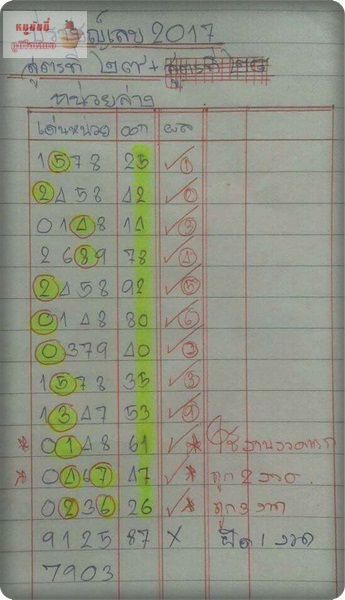 หมูยักษ์
ปราชญ์เลข 2017
สูตรที่ ๒๓+
หน่วยล่าง
เด่นหน่วย ออก ผล
1578 25 ✓ 1
2458 42 ✓ 2
0148 14 ✓ 3
2689 78 ✓ 4
2458 92 ✓ 5
0148 80 ✓ 6
0379 40 ✓ 7
1578 35 ✓ 8
1347 53 ✓ 9
* 0148 61 ✓ *
* 0467 47 ✓ * ถูก 2 งวด
0236 26 ✓ * ถูก 3 งวด
9125 87 X ผิด 1 งวด
7903